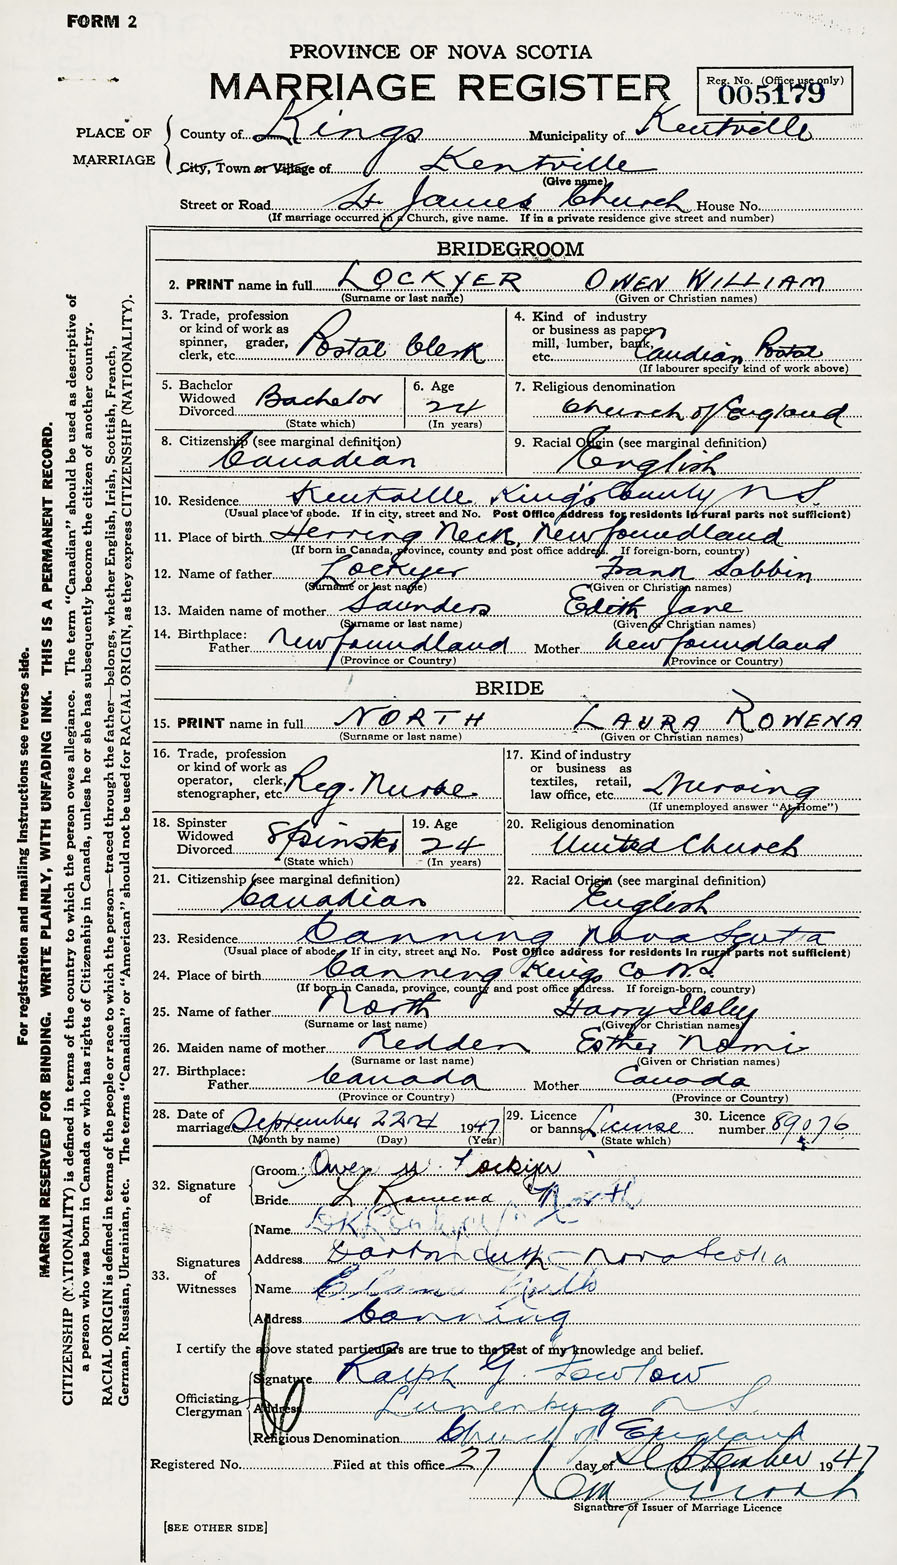 FORM 2
PROVINCE OF NOVA SCOTIA
MARRIAGE REGISTER
Reg. No. (Office use only)
005179
PLACE OF MARRIAGE
County of Kings Municipality of Kentville
City, Town or Village of Kentville
(Give name)
Street or Road St James Church House No.
(If marriage occurred in a Church, give name. If in a private residence give street and number)
BRIDEGROOM
2. PRINT name in full LOCKYER OWEN WILLIAM
(Surname or last name) (Given or Christian names)
3. Trade, profession or kind of work as spinner, grader, clerk, etc. Postal Clerk
4. Kind of industry or business as paper mill, lumber, bank, etc. Caudian Postal
(If labourer specify kind of work above)
5. Bachelor Widowed Divorced Bachelor
(State which)
6. Age 24
(In years)
7. Religious denomination
Church of England
8. Citizenship (see marginal definition)
Canadian
9. Racial Origin (see marginal definition)
English
10. Residence Kentville King's County N S.
(Usual place of abode. If in city, street and No. Post Office address for residents in rural parts not sufficient)
11. Place of birth Herring Neck, Newfoundland
(If born in Canada, province, county and post office address. If foreign-born, country)
12. Name of father Lockyer Frank Sabbin
(Surname or last name) (Given or Christian names)
13. Maiden name of mother Saunders Edith Jane
(Surname or last name) (Given or Christian names)
14. Birthplace:
Father Newfoundland Mother Newfoundland
(Province or Country) (Province or Country)
BRIDE
15. PRINT name in full NORTH LAURA ROWENA
(Surname or last name) (Given or Christian names)
16. Trade, profession or kind of work as operator, clerk, stenographer, etc. Reg. Nurse
17. Kind of industry or business as textiles, retail, law office, etc. Nursing
(If unemployed answer "At Home")
18. Spinster Widowed Divorced Spinster
(State which)
19. Age 24
(In years)
20. Religious denomination
United Church
21. Citizenship (see marginal definition)
Canadian
22. Racial Origin (see marginal definition)
English
23. Residence Canning Nova Scotia
(Usual place of abode. If in city, street and No. Post Office address for residents in rural parts not sufficient)
24. Place of birth Canning Kings Co N.S.
(If born in Canada, province, county and post office address. If foreign-born, country)
25. Name of father North Harry Ilsley
(Surname or last name) (Given or Christian names)
26. Maiden name of mother Redden Esther Nomi
(Surname or last name) (Given or Christian names)
27. Birthplace:
Father Canada Mother Canada
(Province or Country) (Province or Country)
28. Date of marriage September 22nd 1947
(Month by name) (Day) (Year)
29. Licence or banns License
(State which)
30. Licence number 89076
32. Signature of
Groom Owen W. Lockyer
Bride L Rowena North
33. Signatures of Witnesses
Name
Address Dartmouth Nova Scotia
Name North
Address Canning
I certify the above stated particulars are true to the best of my knowledge and belief.
Officiating Clergyman
Signature Ralph G. Fowlow
Address Lunenburg N S.
Religious Denomination Church of England
Registered No. Filed at this office 27 day of September 1947
Signature of Issuer of Marriage Licence
[SEE OTHER SIDE]
For registration and mailing instructions see reverse side.
MARGIN RESERVED FOR BINDING. WRITE PLAINLY, WITH UNFADING INK. THIS IS A PERMANENT RECORD.
CITIZENSHIP (NATIONALITY) is defined in terms of the country to which the person owes allegiance. The term "Canadian" should be used as descriptive of
a person who was born in Canada or who has rights of Citizenship in Canada, unless he or she has subsequently become the citizen of another country.
RACIAL ORIGIN is defined in terms of the people or race to which the person—traced through the father—belongs, whether English, Irish, Scottish, French,
German, Russian, Ukrainian, etc. The terms "Canadian" or "American" should not be used for RACIAL ORIGIN, as they express CITIZENSHIP (NATIONALITY).